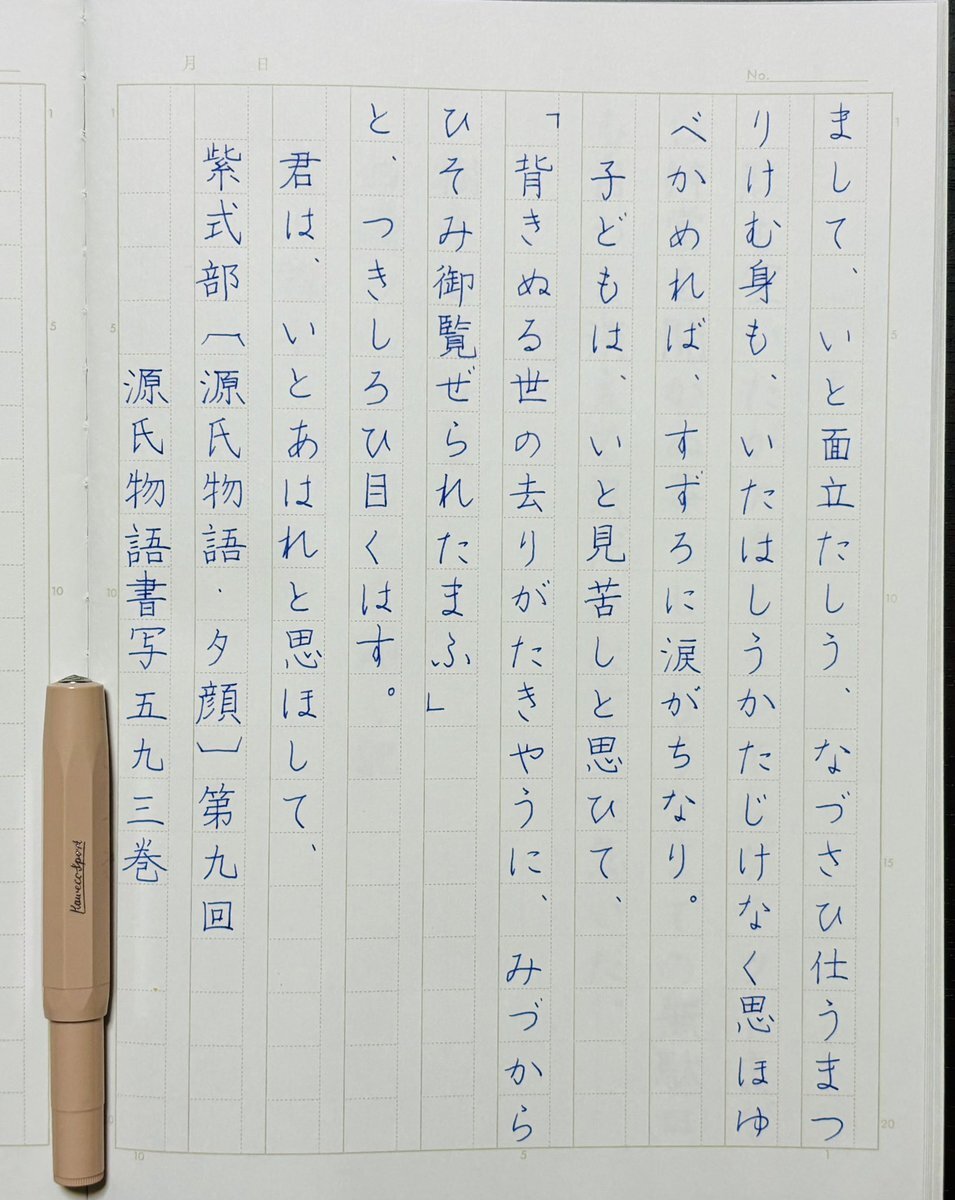 まして、いと面立たしう、なづさひ仕うまつ
りけむ身も、いたはしうかたじけなく思ほゆ
べかめれば、すずろに涙がちなり。
子どもは、いと見苦しと思ひて、
「背きぬる世の去りがたきやうに、みづから
ひそみ御覧ぜられたまふ」
と、つきしろひ目くはす。
君は、いとあはれと思ほして、
紫式部〔源氏物語・夕顔〕第九回
源氏物語書写五九三巻
月 日
No.
1
5
10
15
20
1
5
10
1
5
10
Kaweco Sport